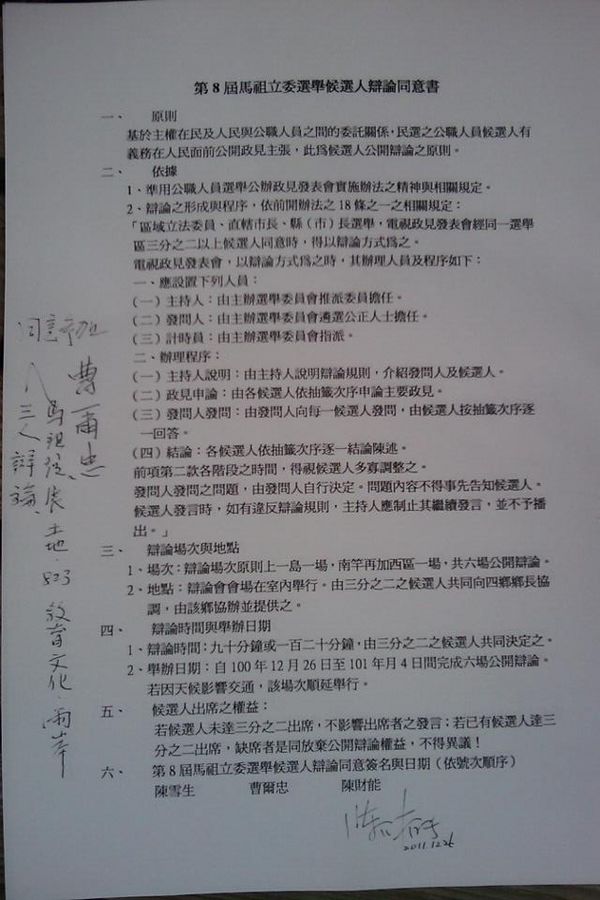 第8屆馬祖立委選舉候選人辯論同意書
一、 原則
基於主權在民及人民與公職人員之間的委託關係,民選之公職人員候選人有
義務在人民面前公開政見主張,此為候選人公開辯論之原則。
二、 依據
1、準用公職人員選舉公辦政見發表會實施辦法之精神與相關規定。
2、辯論之形成與程序,依前開辦法之18條之一之相關規定:
「區域立法委員、直轄市長、縣(市)長選舉,電視政見發表會經同一選舉
區三分之二以上候選人同意時,得以辯論方式為之。
電視政見發表會,以辯論方式為之時,其辦理人員及程序如下:
一、應設置下列人員:
(一)主持人:由主辦選舉委員會推派委員擔任。
(二)發問人:由主辦選舉委員會遴選公正人士擔任。
(三)計時員:由主辦選舉委員會指派。
二、辦理程序:
(一)主持人說明:由主持人說明辯論規則,介紹發問人及候選人。
(二)政見申論:由各候選人依抽籤次序申論主要政見。
(三)發問人發問:由發問人向每一候選人發問,由候選人按抽籤次序逐
一回答。
(四)結論:各候選人依抽籤次序逐一結論陳述。
前項第二款各階段之時間,得視候選人多寡調整之。
發問人發問之問題,由發問人自行決定。問題內容不得事先告知候選人。
候選人發言時,如有違反辯論規則,主持人應制止其繼續發言,並不予播
出。」
三、 辯論場次與地點
1、場次:辯論場次原則上一島一場,南竿再加西區一場,共六場公開辯論。
2、地點:辯論會會場在室內舉行。由三分之二之候選人共同向四鄉鄉長協
調,由該鄉協辦並提供之。
四、 辯論時間與舉辦日期
1、辯論時間:九十分鐘或一百二十分鐘,由三分之二候選人共同決定之。
2、舉辦日期:自100年12月26日至101年月4日間完成六場公開辯論。
若因天候影響交通,該場次順延舉行。
五、 候選人出席之權益:
若候選人未達三分之二出席,不影響出席者之發言;若已有候選人達三
分之二出席,缺席者是同放棄公開辯論權益,不得異議!
六、 第8屆馬祖立委選舉候選人辯論同意簽名與日期(依號次順序)
陳雪生 曹爾忠 陳財能
2011.12.26
曹爾忠
馬祖 發展、土地、823 教育文化、兩岸
三人辯論